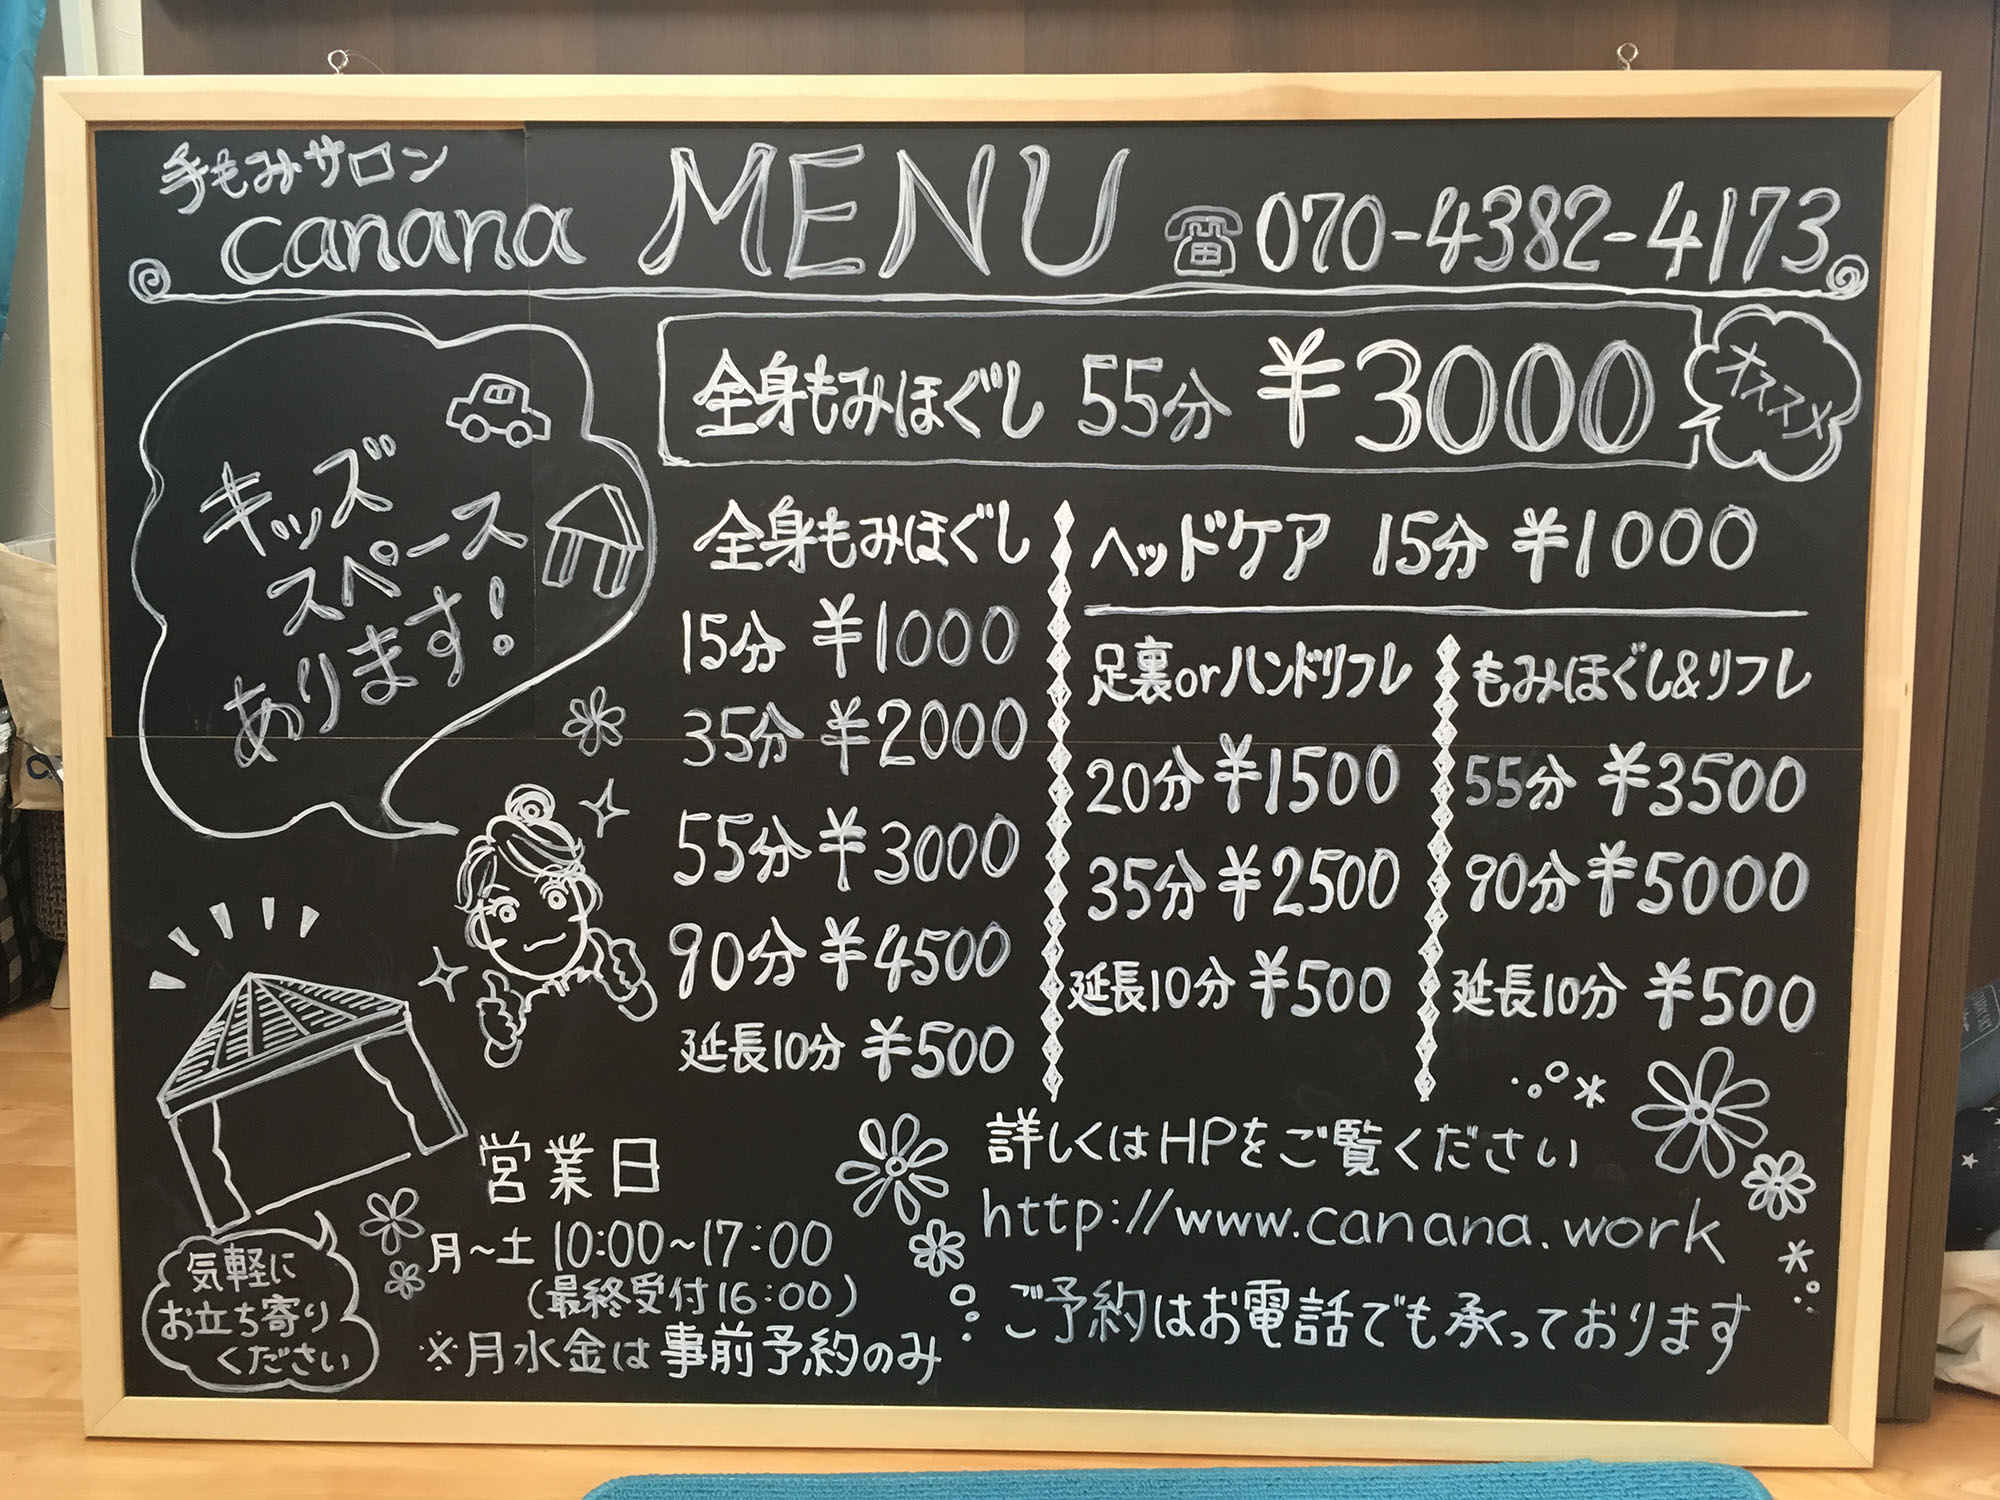 手もみサロン
canana MENU ☎070-4382-4173
全身もみほぐし 55分 ¥3000
オススメ
キッズ
スペース
あります!
全身もみほぐし
15分 ¥1000
35分 ¥2000
55分 ¥3000
90分 ¥4500
延長10分 ¥500
ヘッドケア 15分 ¥1000
足裏orハンドリフレ
20分 ¥1500
35分 ¥2500
延長10分 ¥500
もみほぐし&リフレ
55分 ¥3500
90分 ¥5000
延長10分 ¥500
気軽に
お立ち寄り
ください
営業日
月~土 10:00~17:00
(最終受付16:00)
※月水金は事前予約のみ
詳しくはHPをご覧ください
http://www.canana.work
ご予約はお電話でも承っております